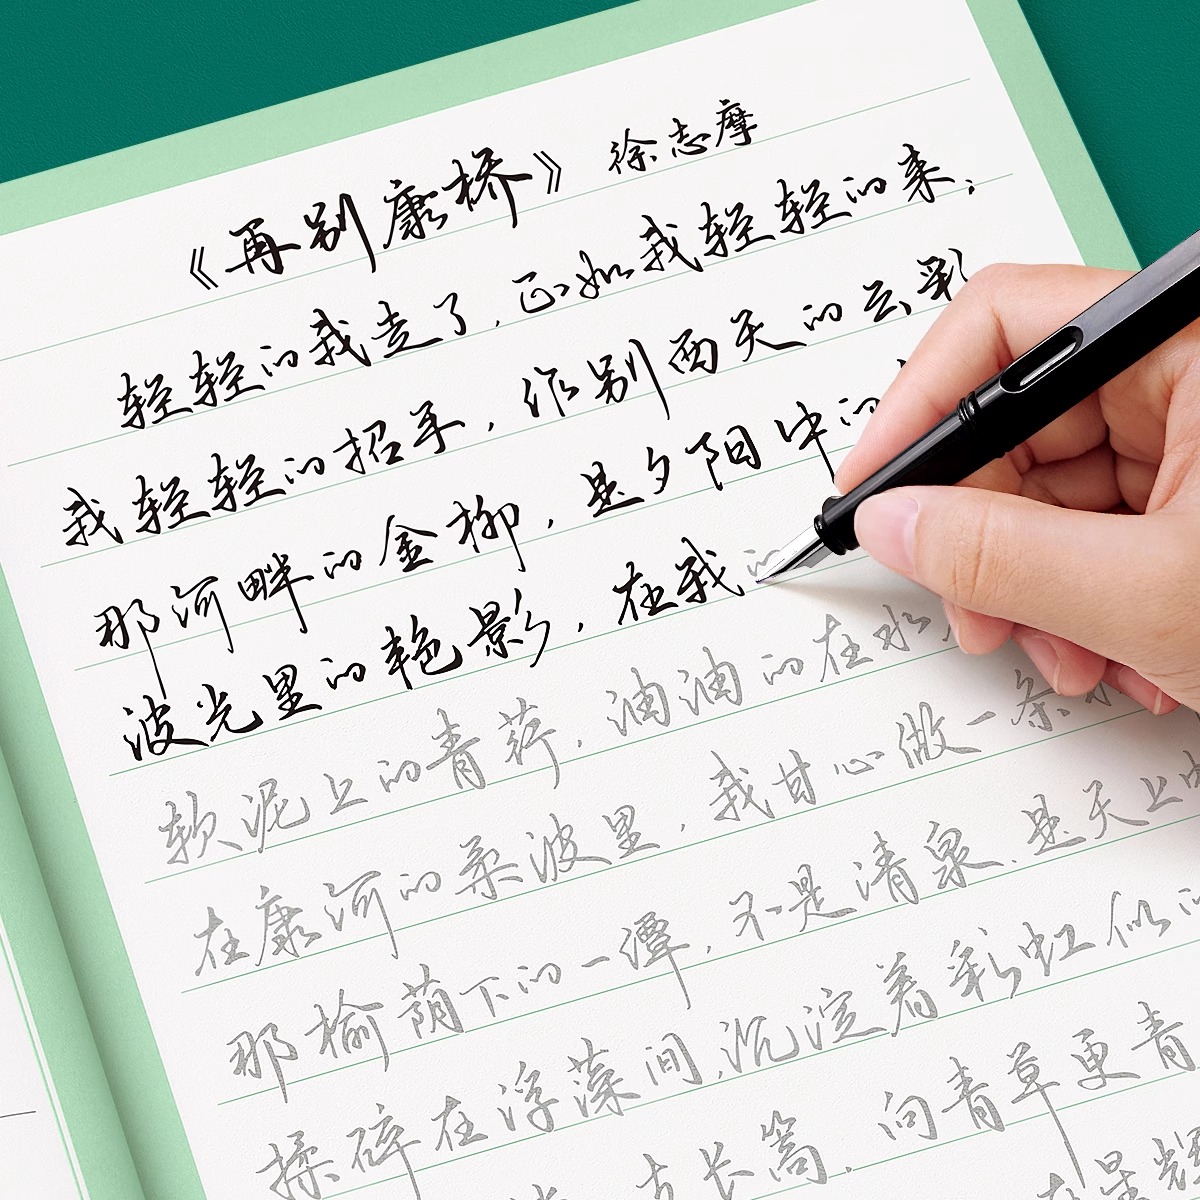 《再别康桥》 徐志摩
轻轻的我走了，正如我轻轻的来；
我轻轻的招手，作别西天的云彩
那河畔的金柳，是夕阳中的
波光里的艳影，在我的
软泥上的青荇，油油的在水
在康河的柔波里，我甘心做一条
那榆荫下的一潭，不是清泉，是天上
揉碎在浮藻间，沉淀着彩虹似的
长篙，向青草更青